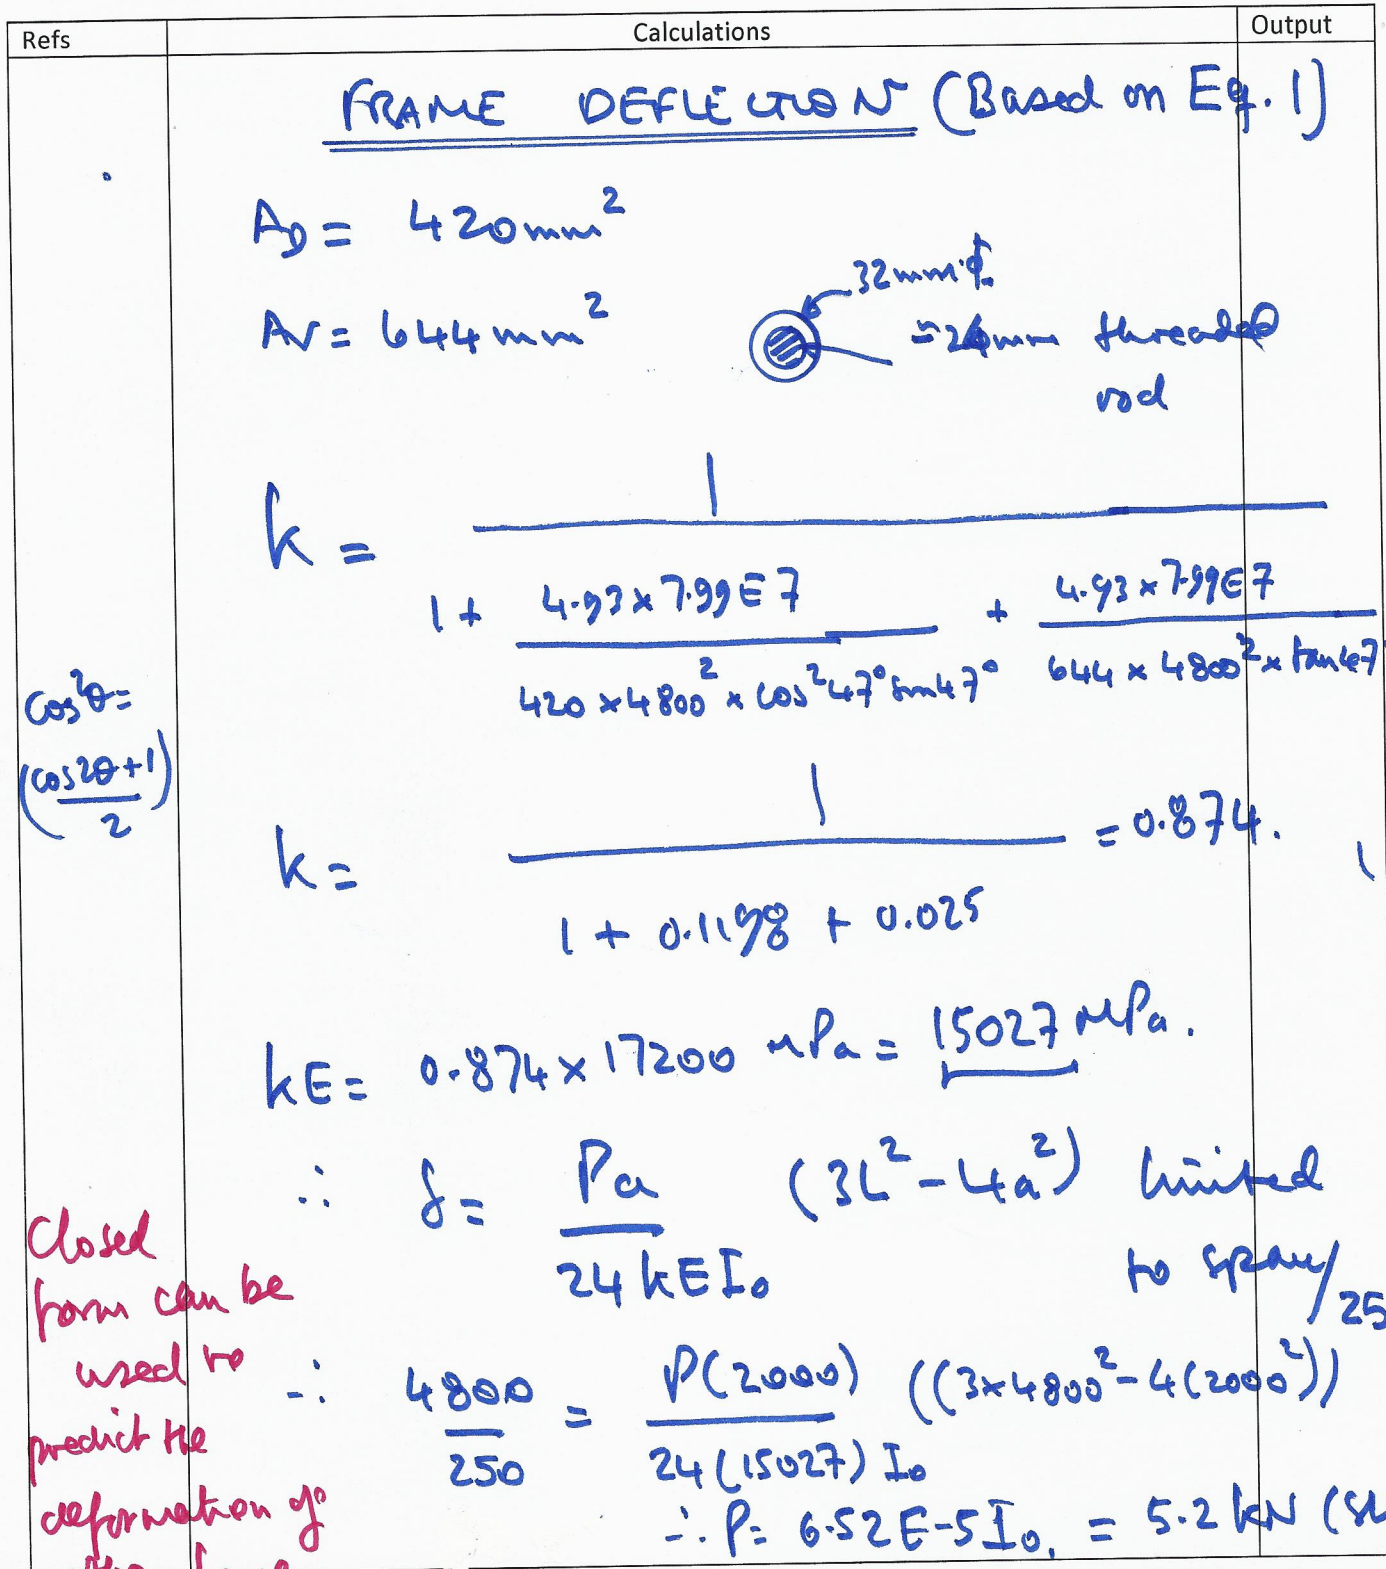 Refs Calculations Output
FRAME DEFLECTION (Based on Eq. 1)
A_D = 420mm²
Av = 644mm²
32mm ϕ
threaded
rod
k = 1 / (1 + 4.93 x 7.99E7 / (420 x 4800² x cos²47° sin47°) + 4.93 x 7.99E7 / (644 x 4800² x tan47))
cos²θ=
(cos2θ+1 / 2)
k = 1 / (1 + 0.1198 + 0.025) = 0.874.
kE = 0.874 x 17200 MPa = 15027 MPa.
∴ δ = Pa / 24kEI₀ (3L² - 4a²) limited
to span/25
∴ 4800/250 = P(2000) / 24(15027) I₀ ((3x4800² - 4(2000²))
∴ P = 6.52E-5I₀. = 5.2kN (SL
Closed
form can be
used to
predict the
deformation of